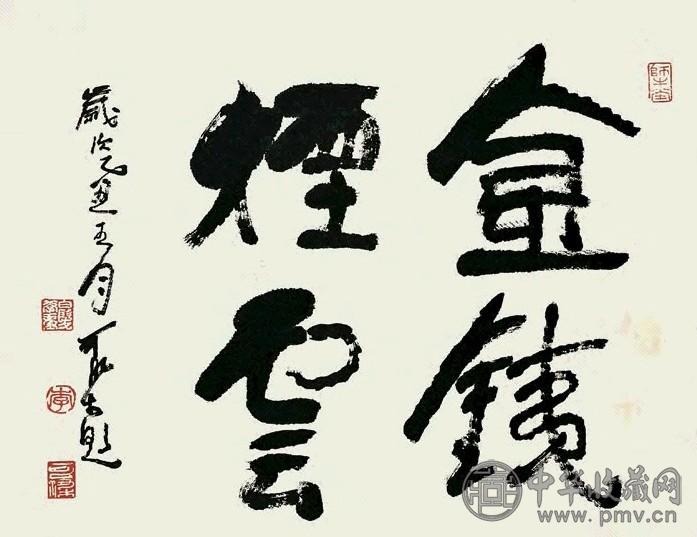 金銕
煙雲
歲次乙丑五月
中华收藏网
www.pmv.cn